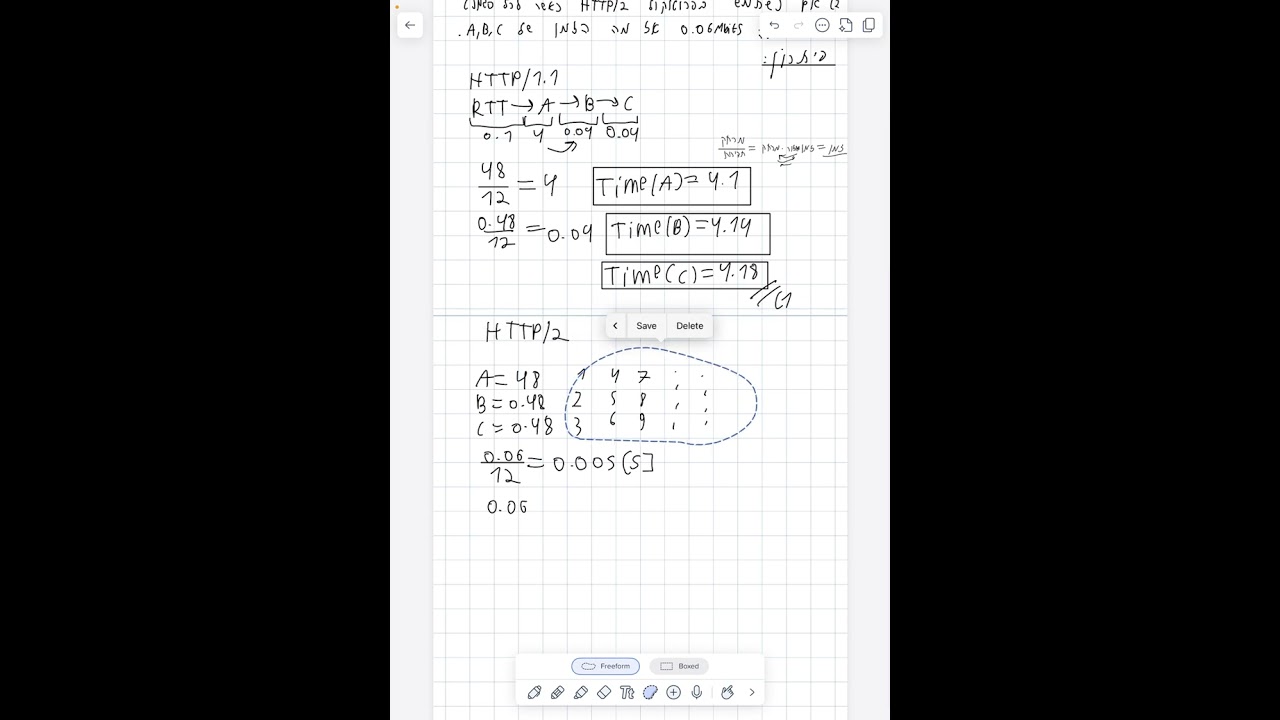 HTTP/2
0.06Mbits של A,B,C.
פתרון:
HTTP/1.1
RTT → A → B → C
0.1 4 0.04 0.04
48/12 = 4
Time(A)=4.1
0.48/12 = 0.04
Time(B)=4.14
Time(C)=4.18
HTTP/2
Save Delete
A=48 1 4 7 ; .
B=0.48 2 5 8 , ;
C=0.48 3 6 9 , ,
0.06/12 = 0.005[S]
0.06
Freeform Boxed